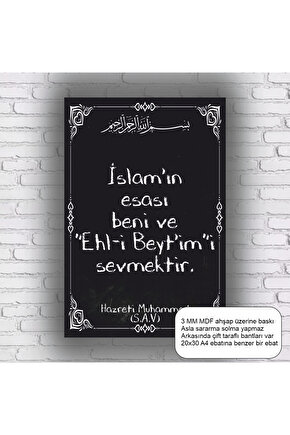 بسم الله الرحمن الرحيم
İslam'ın
esası
beni ve
"Ehl-i Beyt'im"i
sevmektir.
Hazreti Muhammed
(S.A.V)
3 MM MDF ahşap üzerine baskı
Asla sararma solma yapmaz
Arkasında çift taraflı bantları var
20x30 A4 ebatına benzer bir ebat